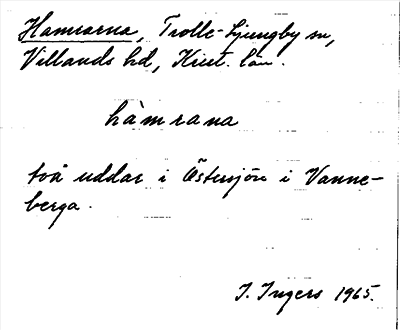 Hamrarna, Trolle-Ljungby sn,
Villands hd, Krist. län.
hàmrana
två uddar i Östersjön i Vanne-
berga.
I. Ingers 1965.